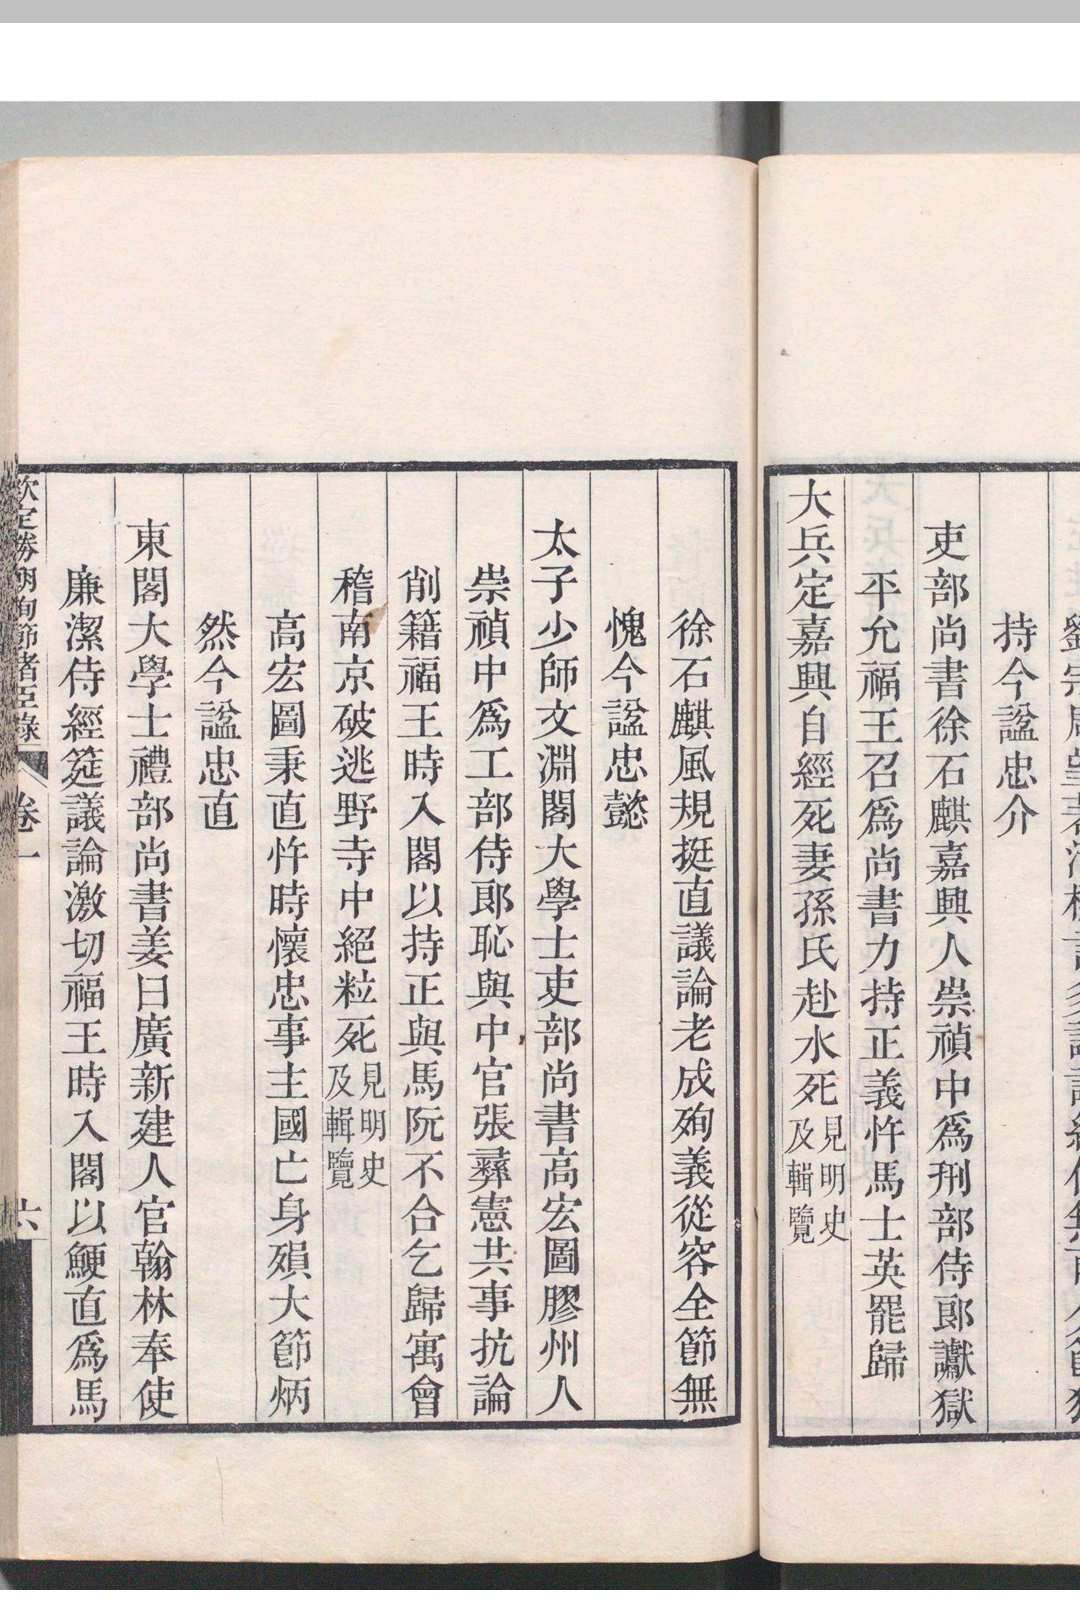 持今諡忠介
吏部尚書徐石麒嘉興人崇禎中爲刑部侍郎讞獄
平允福王召爲尚書力持正義忤馬士英罷歸
大兵定嘉興自經死妻孫氏赴水死見明史及輯覽
徐石麒風規挺直議論老成殉義從容全節無
愧今諡忠懿
太子少師文淵閣大學士吏部尚書高宏圖膠州人
崇禎中爲工部侍郎恥與中官張彞憲共事抗論
削籍福王時入閣以持正與馬阮不合乞歸寓會
稽南京破逃野寺中絕粒死見明史及輯覽
高宏圖秉直忤時懷忠事主國亡身殞大節炳
然今諡忠直
東閣大學士禮部尚書姜曰廣新建人官翰林奉使
廉潔侍經筵議論激切福王時入閣以鯁直爲馬
欽定勝朝殉節諸臣錄 卷一 六